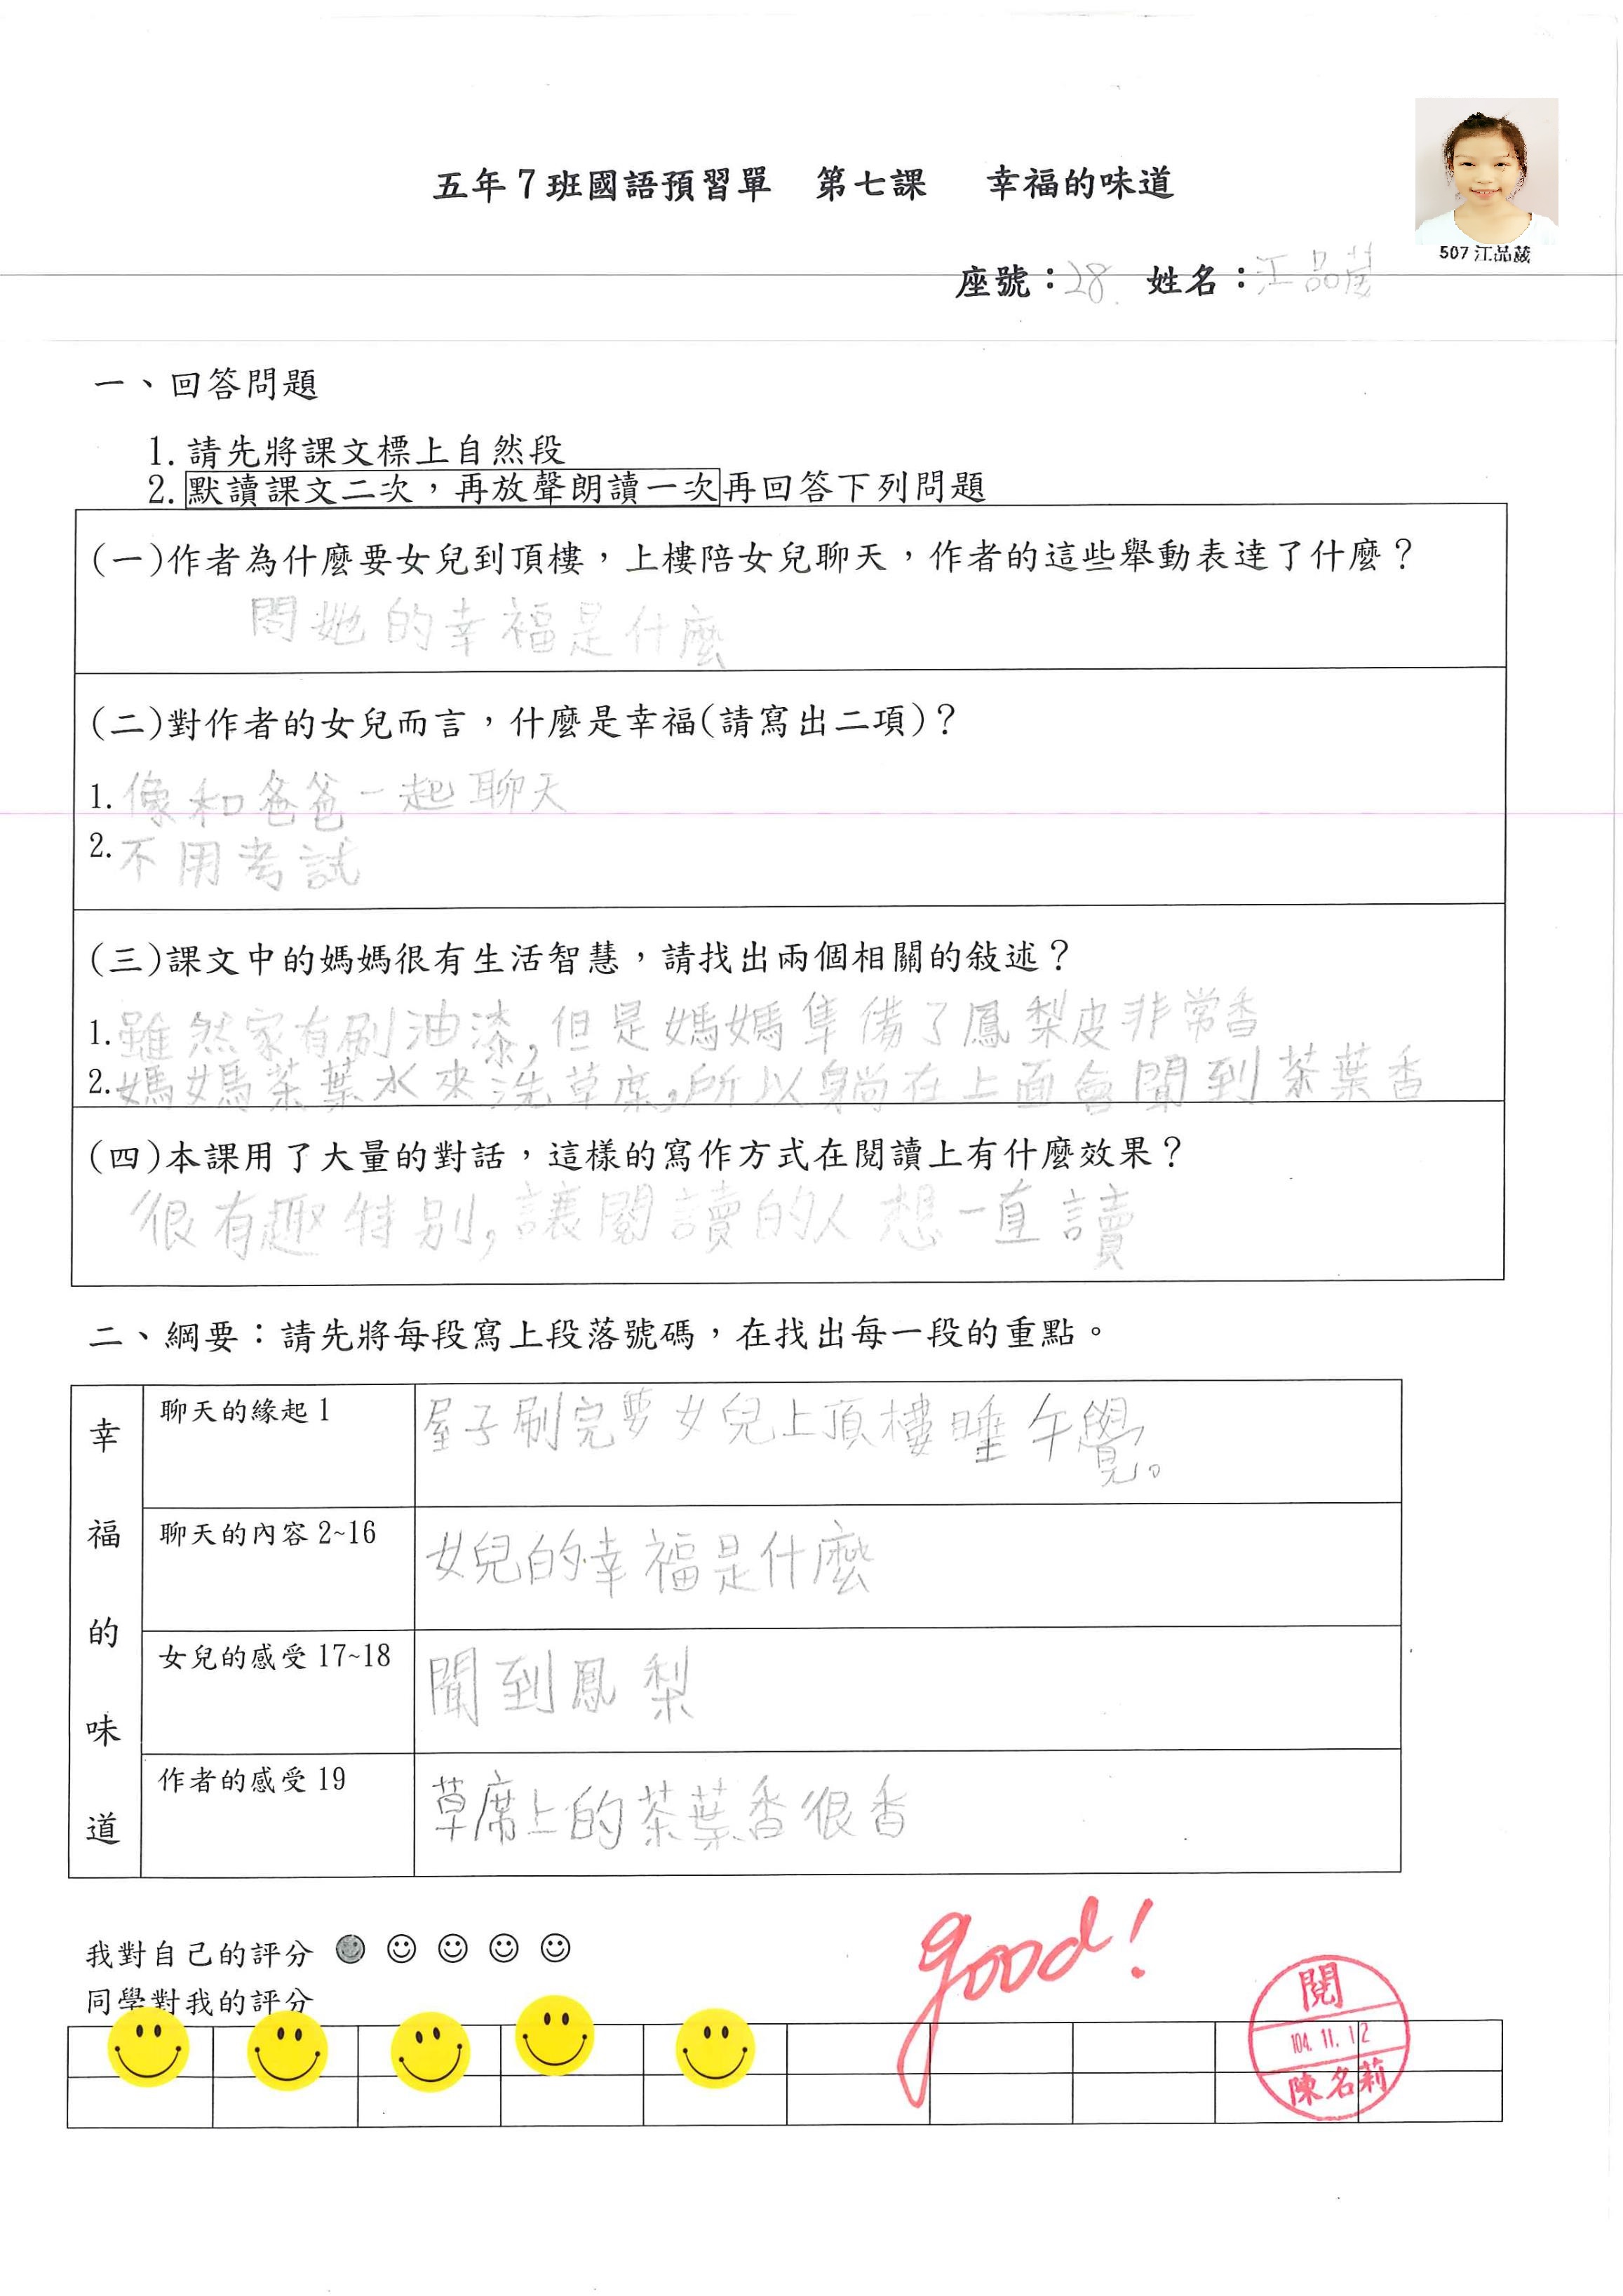 五年7班國語預習單　第七課　幸福的味道
507 江品葳
座號：28 姓名：江品葳
一、回答問題
1. 請先將課文標上自然段
2. 默讀課文二次，再放聲朗讀一次再回答下列問題
(一)作者為什麼要女兒到頂樓，上樓陪女兒聊天，作者的這些舉動表達了什麼？
問她的幸福是什麼
(二)對作者的女兒而言，什麼是幸福(請寫出二項)？
1. 像和爸爸一起聊天
2. 不用考試
(三)課文中的媽媽很有生活智慧，請找出兩個相關的敍述？
1. 雖然家有刷油漆，但是媽媽準備了鳳梨皮非常香
2. 媽媽茶葉水來洗草席，所以躺在上面會聞到茶葉香
(四)本課用了大量的對話，這樣的寫作方式在閱讀上有什麼效果？
很有趣特別，讓閱讀的人想一直讀
二、綱要：請先將每段寫上段落號碼，在找出每一段的重點。
幸福的味道
聊天的緣起1 屋子刷完要女兒上頂樓睡午覺。
聊天的內容2~16 女兒的幸福是什麼
女兒的感受17~18 聞到鳳梨
作者的感受19 草席上的茶葉香很香
我對自己的評分
同學對我的評分
good!
閱
104. 11. 12
陳名莉